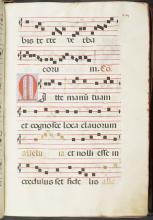 bis te re ve rba
eoru m. Eo.
Mitte manū tuam
et cognosce loca clavorum
alleluia et noli esse in
credulus sed fidelis alle